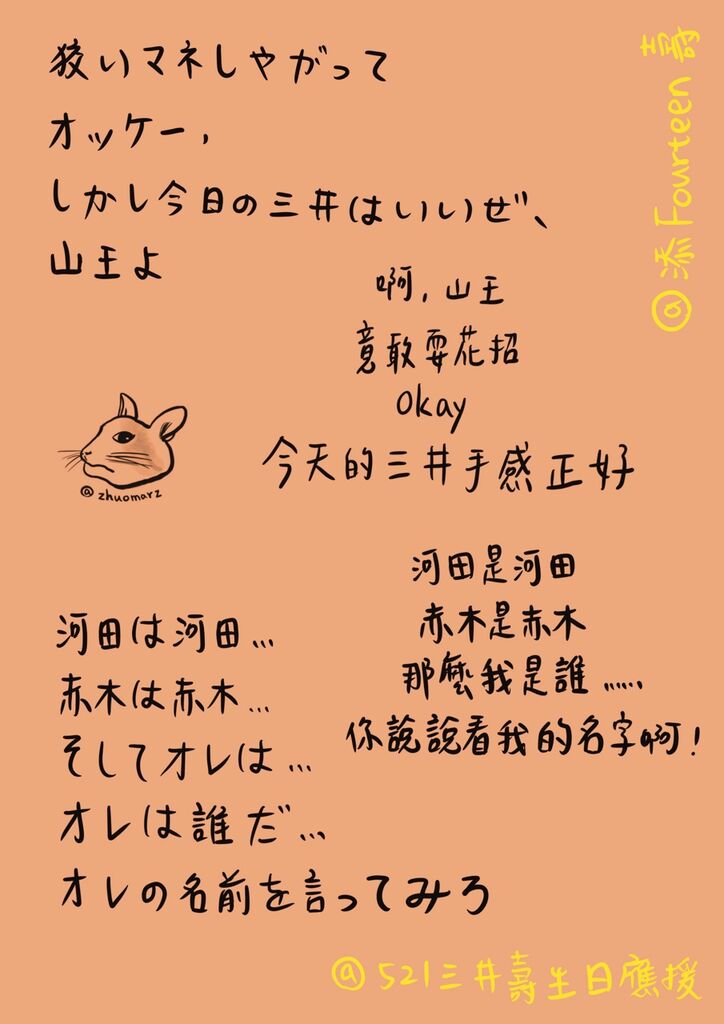 狡いマネしやがって
オッケー，
しかし今日の三井はいいぜ、
山王よ
啊，山王
竟敢耍花招
Okay
今天的三井手感正好
@添Fourteen壽
@zhuomarz
河田は河田...
赤木は赤木...
そしてオレは...
オレは誰だ...
オレの名前を言ってみろ
河田是河田
赤木是赤木
那麼我是誰......
你說說看我的名字啊！
@521三井壽生日應援